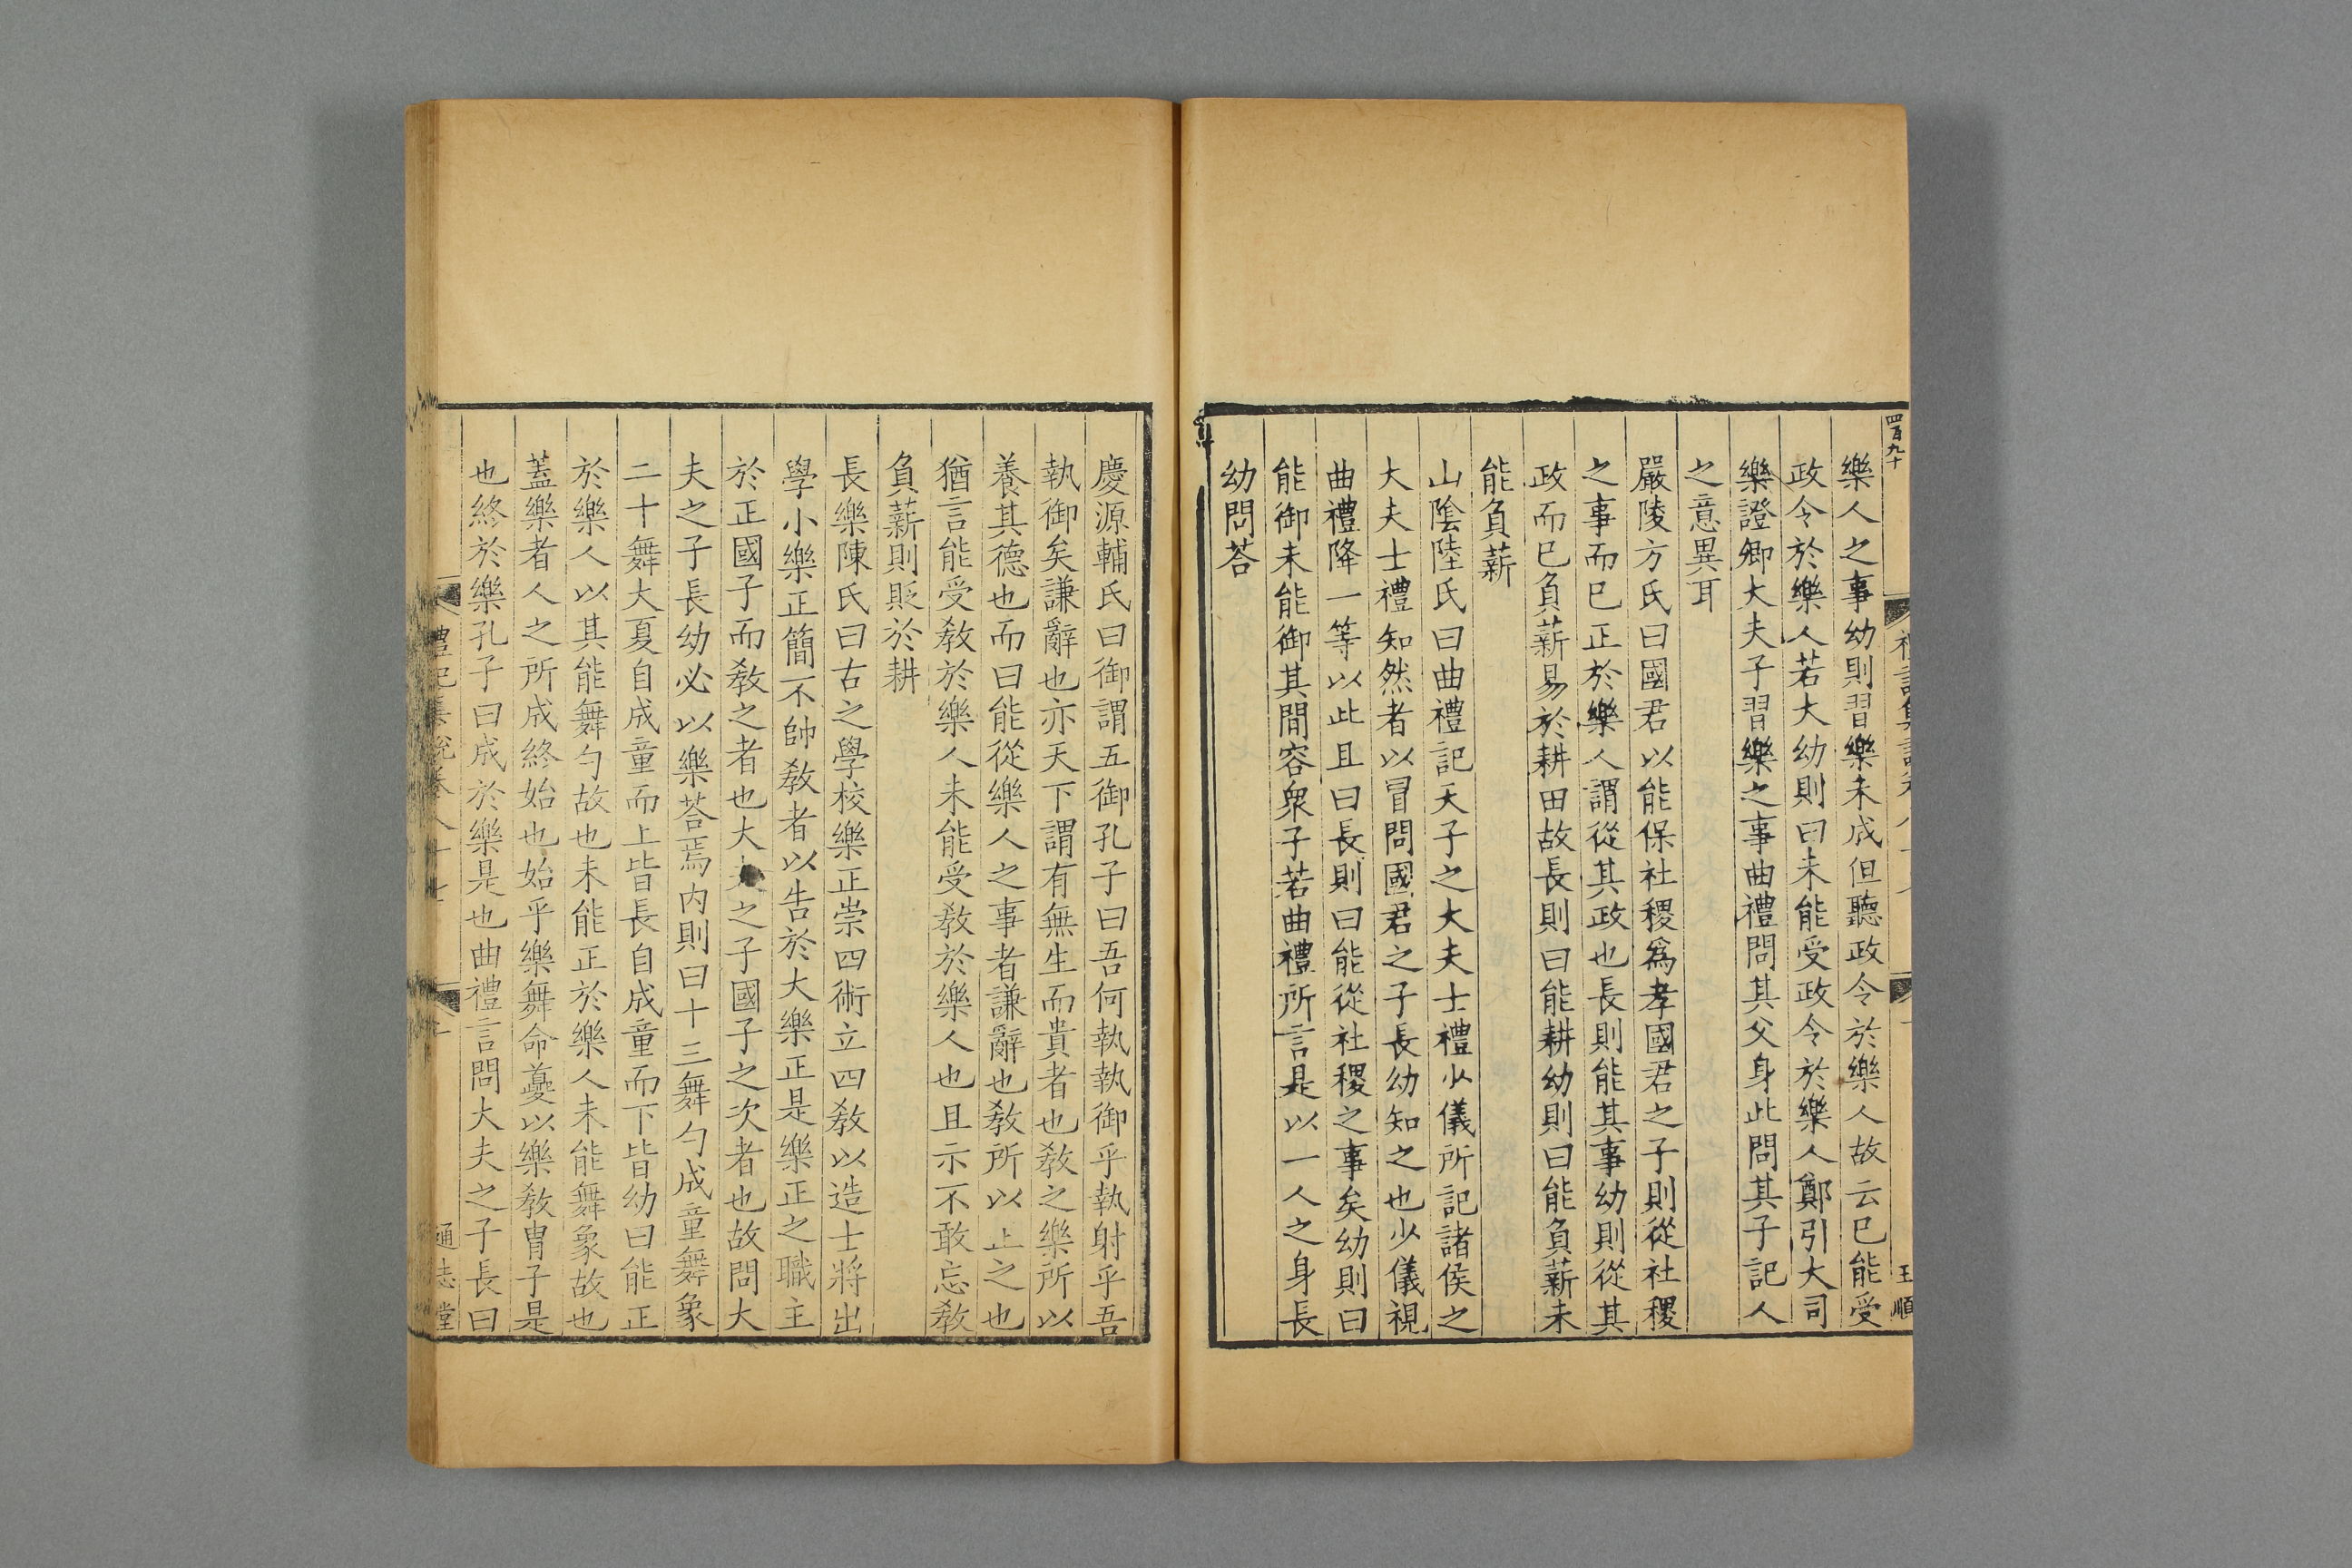 四百九十
王順
樂人之事幼則習樂未成但聽政令於樂人故云巳能受
政令於樂人若大幼則曰未能受政令於樂人鄭引大司
樂證卿大夫子習樂之事曲禮問其父身此問其子記人
之意異耳
嚴陵方氏曰國君以能保社稷爲孝國君之子則從社稷
之事而巳正於樂人謂從其政也長則能其事幼則從其
政而巳負薪易於耕田故長則曰能耕幼則曰能負薪未
能負薪
山陰陸氏曰曲禮記天子之大夫士禮少儀所記諸侯之
大夫士禮知然者以冒問國君之子長幼知之也少儀視
曲禮降一等以此且曰長則曰能從社稷之事矣幼則曰
能御未能御其間容衆子若曲禮所言是以一人之身長
幼問荅
慶源輔氏曰御謂五御孔子曰吾何執執御乎執射乎吾
執御矣謙辭也亦天下謂有無生而貴者也敎之樂所以
養其德也而曰能從樂人之事者謙辭也敎所以止之也
猶言能受敎於樂人未能受敎於樂人也且示不敢忘敎
負薪則貶於耕
長樂陳氏曰古之學校樂正崇四術立四敎以造士將出
學小樂正簡不帥敎者以告於大樂正是樂正之職主
於正國子而敎之者也大之子國子之次者也故問大
夫之子長幼必以樂荅焉内則曰十三舞勺成童舞象
二十舞大夏自成童而上皆長自成童而下皆幼曰能正
於樂人以其能舞勺故也未能正於樂人未能舞象故也
蓋樂者人之所成終始也始乎樂舞命夔以樂敎胄子是
也終於樂孔子曰成於樂是也曲禮言問大夫之子長曰
禮記集說卷八十七
通志堂